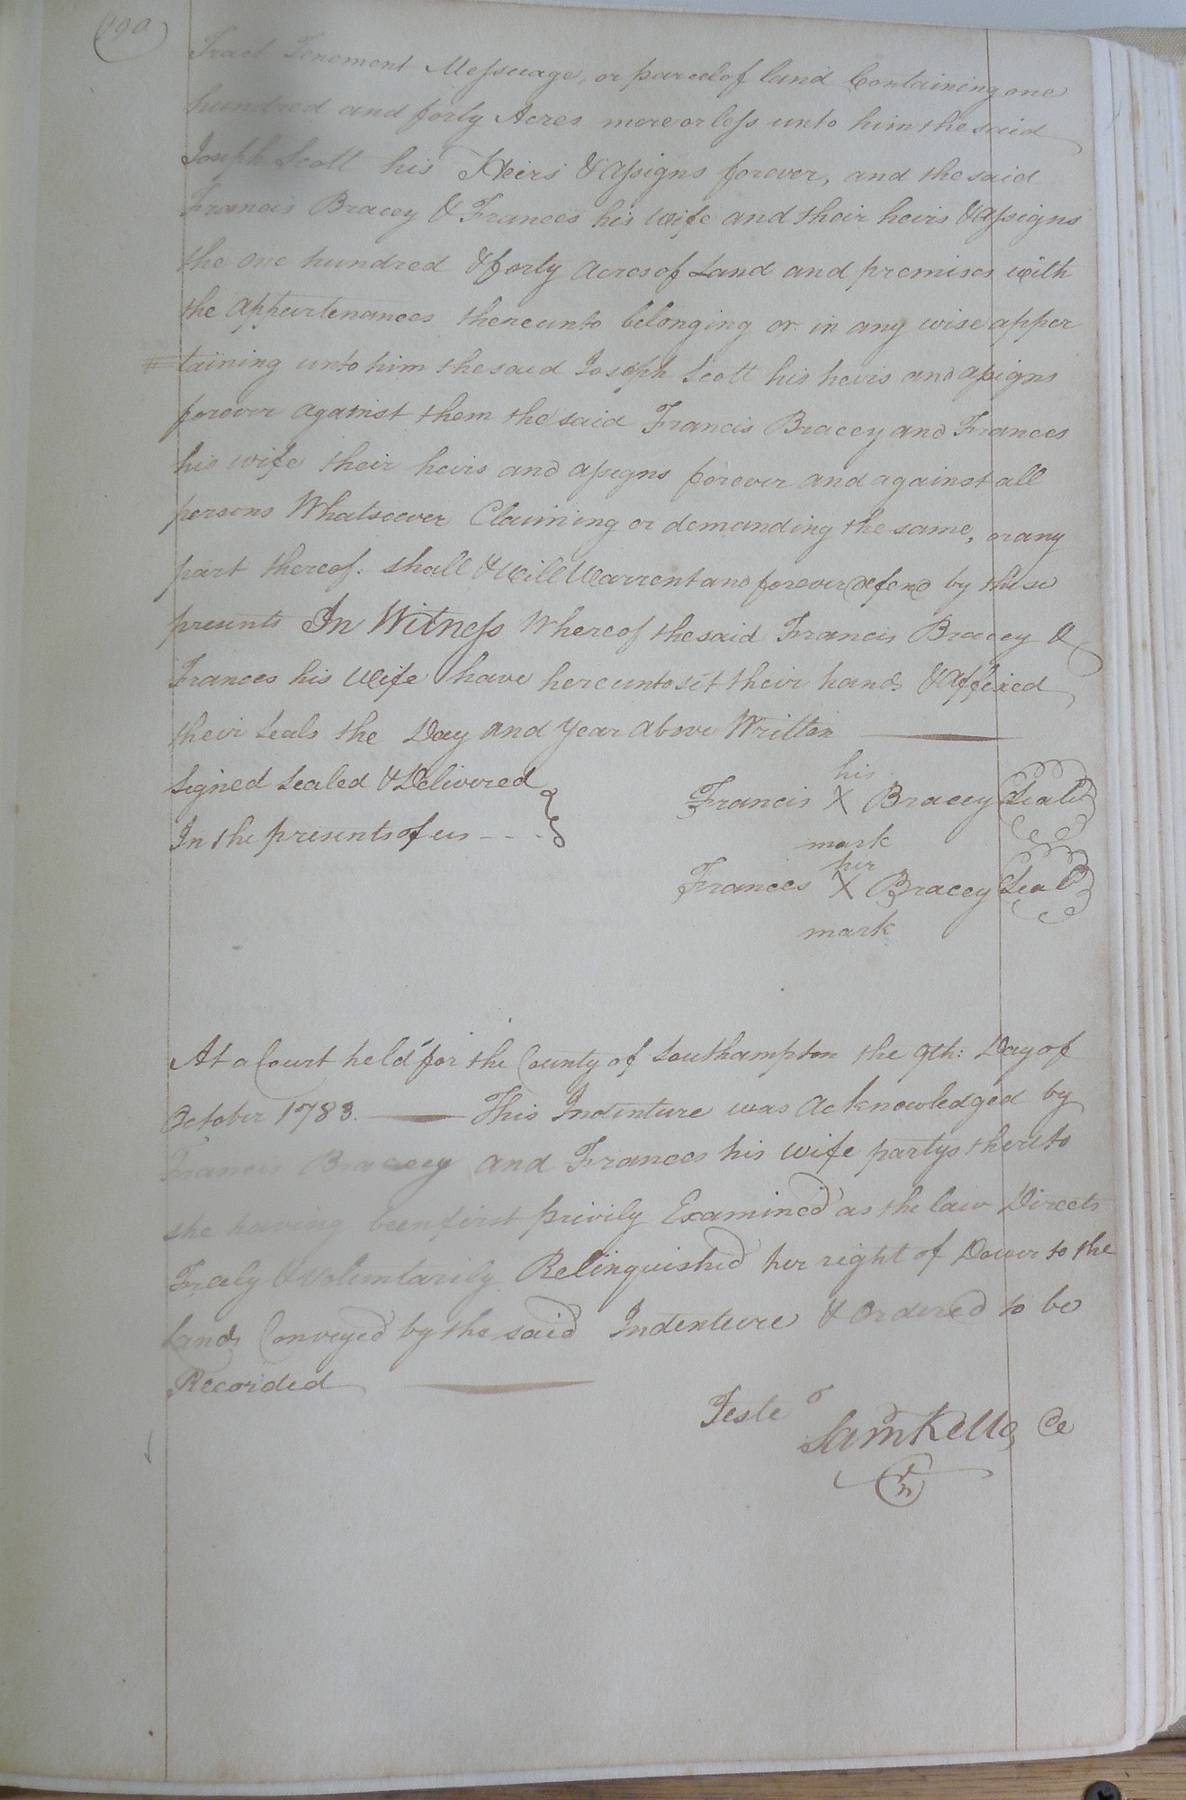 190
Tract Tenement Messuage, or parcel of land Containing one
hundred and forty Acres more or less unto him the said
Joseph Scott his Heirs & assigns forever, and the said
Francis Bracey & Frances his wife and their heirs & assigns
the one hundred & forty acres of Land and premises with
the appurtenances thereunto belonging or in any wise apper
= taining unto him the said Joseph Scott his heirs and assigns
forever against them the said Francis Bracey and Frances
his wife their heirs and assigns forever and against all
persons Whatsoever Claiming or demanding the same, or any
part thereof. shall & Will Warrent and forever defend by these
presents In Witness Whereof the said Francis Bracey &
Frances his Wife have hereunto set their hands & affixed
their Seals the Day and Year above Written
Signed Sealed & Delivered
In the presents of us - - -
his
Francis X Bracey Seal
mark
her
Frances X Bracey Seal
mark
At a Court held for the County of Southampton the 9th: Day of
October 1783. This Indenture was Acknowledged by
Francis Bracey and Frances his wife partys thereto
she having been first privily Examined as the law Directs
Freely & Voluntarily Relinquished her right of Dower to the
lands Conveyed by the said Indenture & Ordered to be
Recorded
Teste
Sam Kello Ce